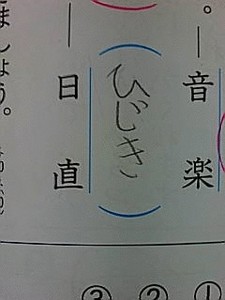 。―音楽
(ひじき)
―日直
ましょう。
①
②
③